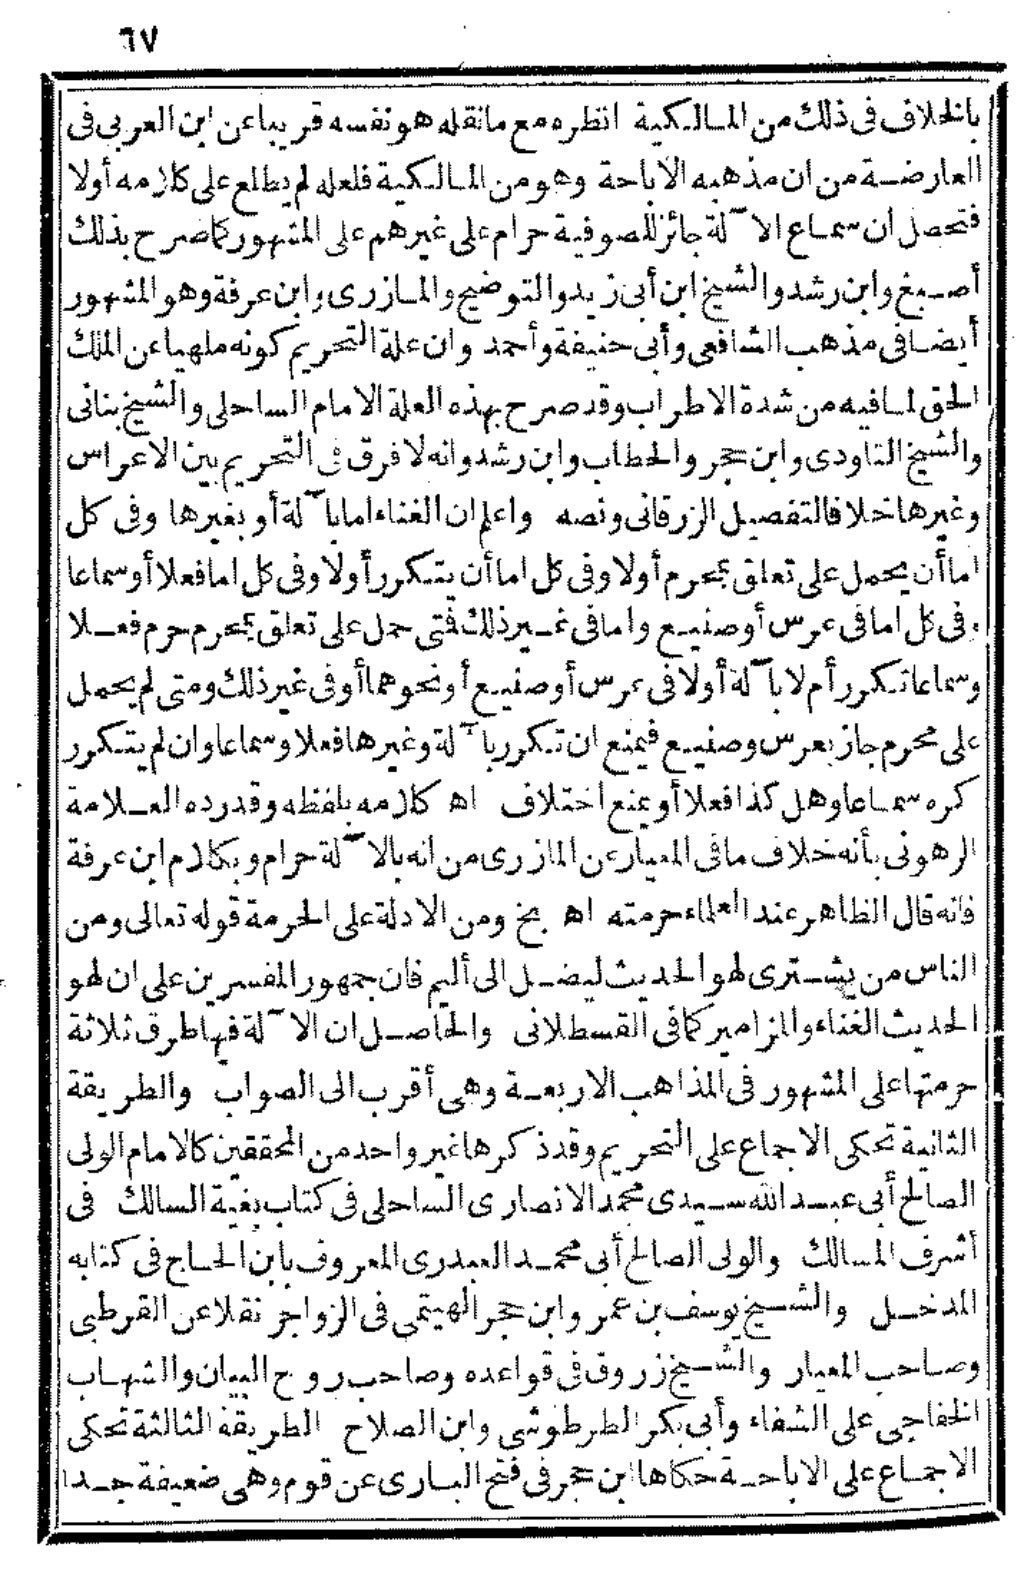 ٦٧
بالخلاف فى ذلك من المالكية انظره مع ما نقله هو نفسه قريبا عن ابن العربى فى
العارضة من ان مذهبه الاباحة وهو من المالكية فلعله لم يطلع على كلامه أولا
فتحصل ان سماع الآلة جائز للصوفية حرام على غيرهم على المشهور كما صرح بذلك
أصبغ وابن رشد والشيخ ابن أبى زيد والتوضيح والمازرى وابن عرفة وهو المشهور
أيضا فى مذهب الشافعى وأبى حنيفة وأحمد وان علة التحريم كونه ملهيا عن الملك
الحق لما فيه من شدة الاطراب وقد صرح بهذه العلة الامام الساحلى والشيخ بنانى
والشيخ التاودى وابن حجر والحطاب وابن رشد وانه لا فرق فى التحريم بين الاعراس
وغيرها خلافا لتفصيل الزرقانى ونصه واعلم ان الغناء اما بآلة أو بغيرها وفى كل
اما أن يحمل على تعلق بمحرم أولا وفى كل اما أن يتكرر أولا وفى كل اما فعلا أو سماعا
وفى كل اما فى عرس أو صنيع واما فى غير ذلك فمتى حمل على تعلق بمحرم حرم فعلا
وسماعا تكرر أم لا بآلة أولا فى عرس أو صنيع أو نحوهما أو فى غير ذلك ومتى لم يحمل
على محرم جاز بعرس وصنيع فيمنع ان تكرر بآلة وغيرها فعلا وسماعا وان لم يتكرر
كره سماعا وهل كذا فعلا أو يمنع اختلاف اه كلامه بلفظه وقد رده العلامة
الرهونى بأنه خلاف ما فى المعيار عن المازرى من انه بالآلة حرام وبكلام ابن عرفة
فانه قال الظاهر عند العلماء حرمته اه بخ ومن الادلة على الحرمة قوله تعالى ومن
الناس من يشترى لهو الحديث ليضل الى أليم فان جمهور المفسرين على ان لهو
الحديث الغناء والمزامير كما فى القسطلانى والحاصل ان الآلة فيها طرق ثلاثة
حرمتها على المشهور فى المذاهب الاربعة وهى أقرب الى الصواب والطريقة
الثانية تحكى الاجماع على التحريم وقد ذكرها غير واحد من المحققين كالامام الولى
الصالح أبى عبد الله سيدى محمد الانصارى الساحلى فى كتاب بغية السالك فى
أشرف المسالك والولى الصالح أبى محمد العبدرى المعروف بابن الحاج فى كتابه
المدخل والشيخ يوسف بن عمر وابن حجر الهيتمى فى الزواجر نقلا عن القرطبى
وصاحب المعيار والشيخ زروق فى قواعده وصاحب روح البيان والشهاب
الخفاجى على الشفاء وأبى بكر الطرطوشى وابن الصلاح الطريقة الثالثة تحكى
الاجماع على الاباحة حكاها ابن حجر فى فتح البارى عن قوم وهى ضعيفة جدا